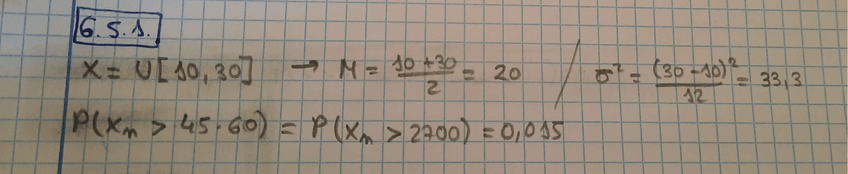 6.5.1.
X = U[10,30] → M = (10+30)/2 = 20 / σ² = (30-10)²/12 = 33,3
P(Xn > 45·60) = P(Xn > 2700) = 0,015